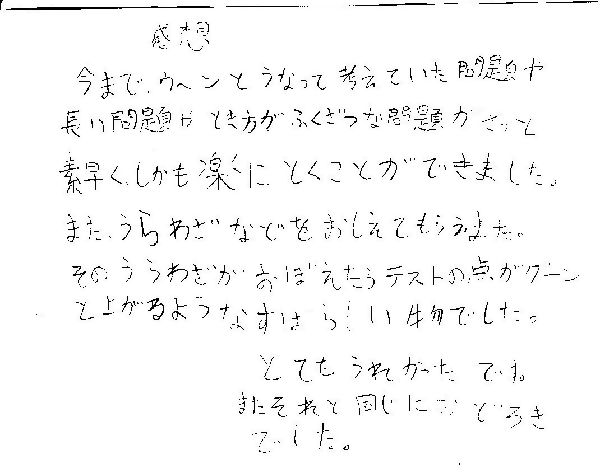 感想
今まで、ウーンとうなって考えていた問題や
長い問題やとき方がふくざつな問題がさっと
素早く、しかも楽にとくことができました。
また、うらわざなどをおしえてもらえました。
そのうらわざがおぼえたらテストの点がグーン
と上がるようなすばらしい物でした。
とてもうれかったです。
またそれと同じにおどろき
でした。